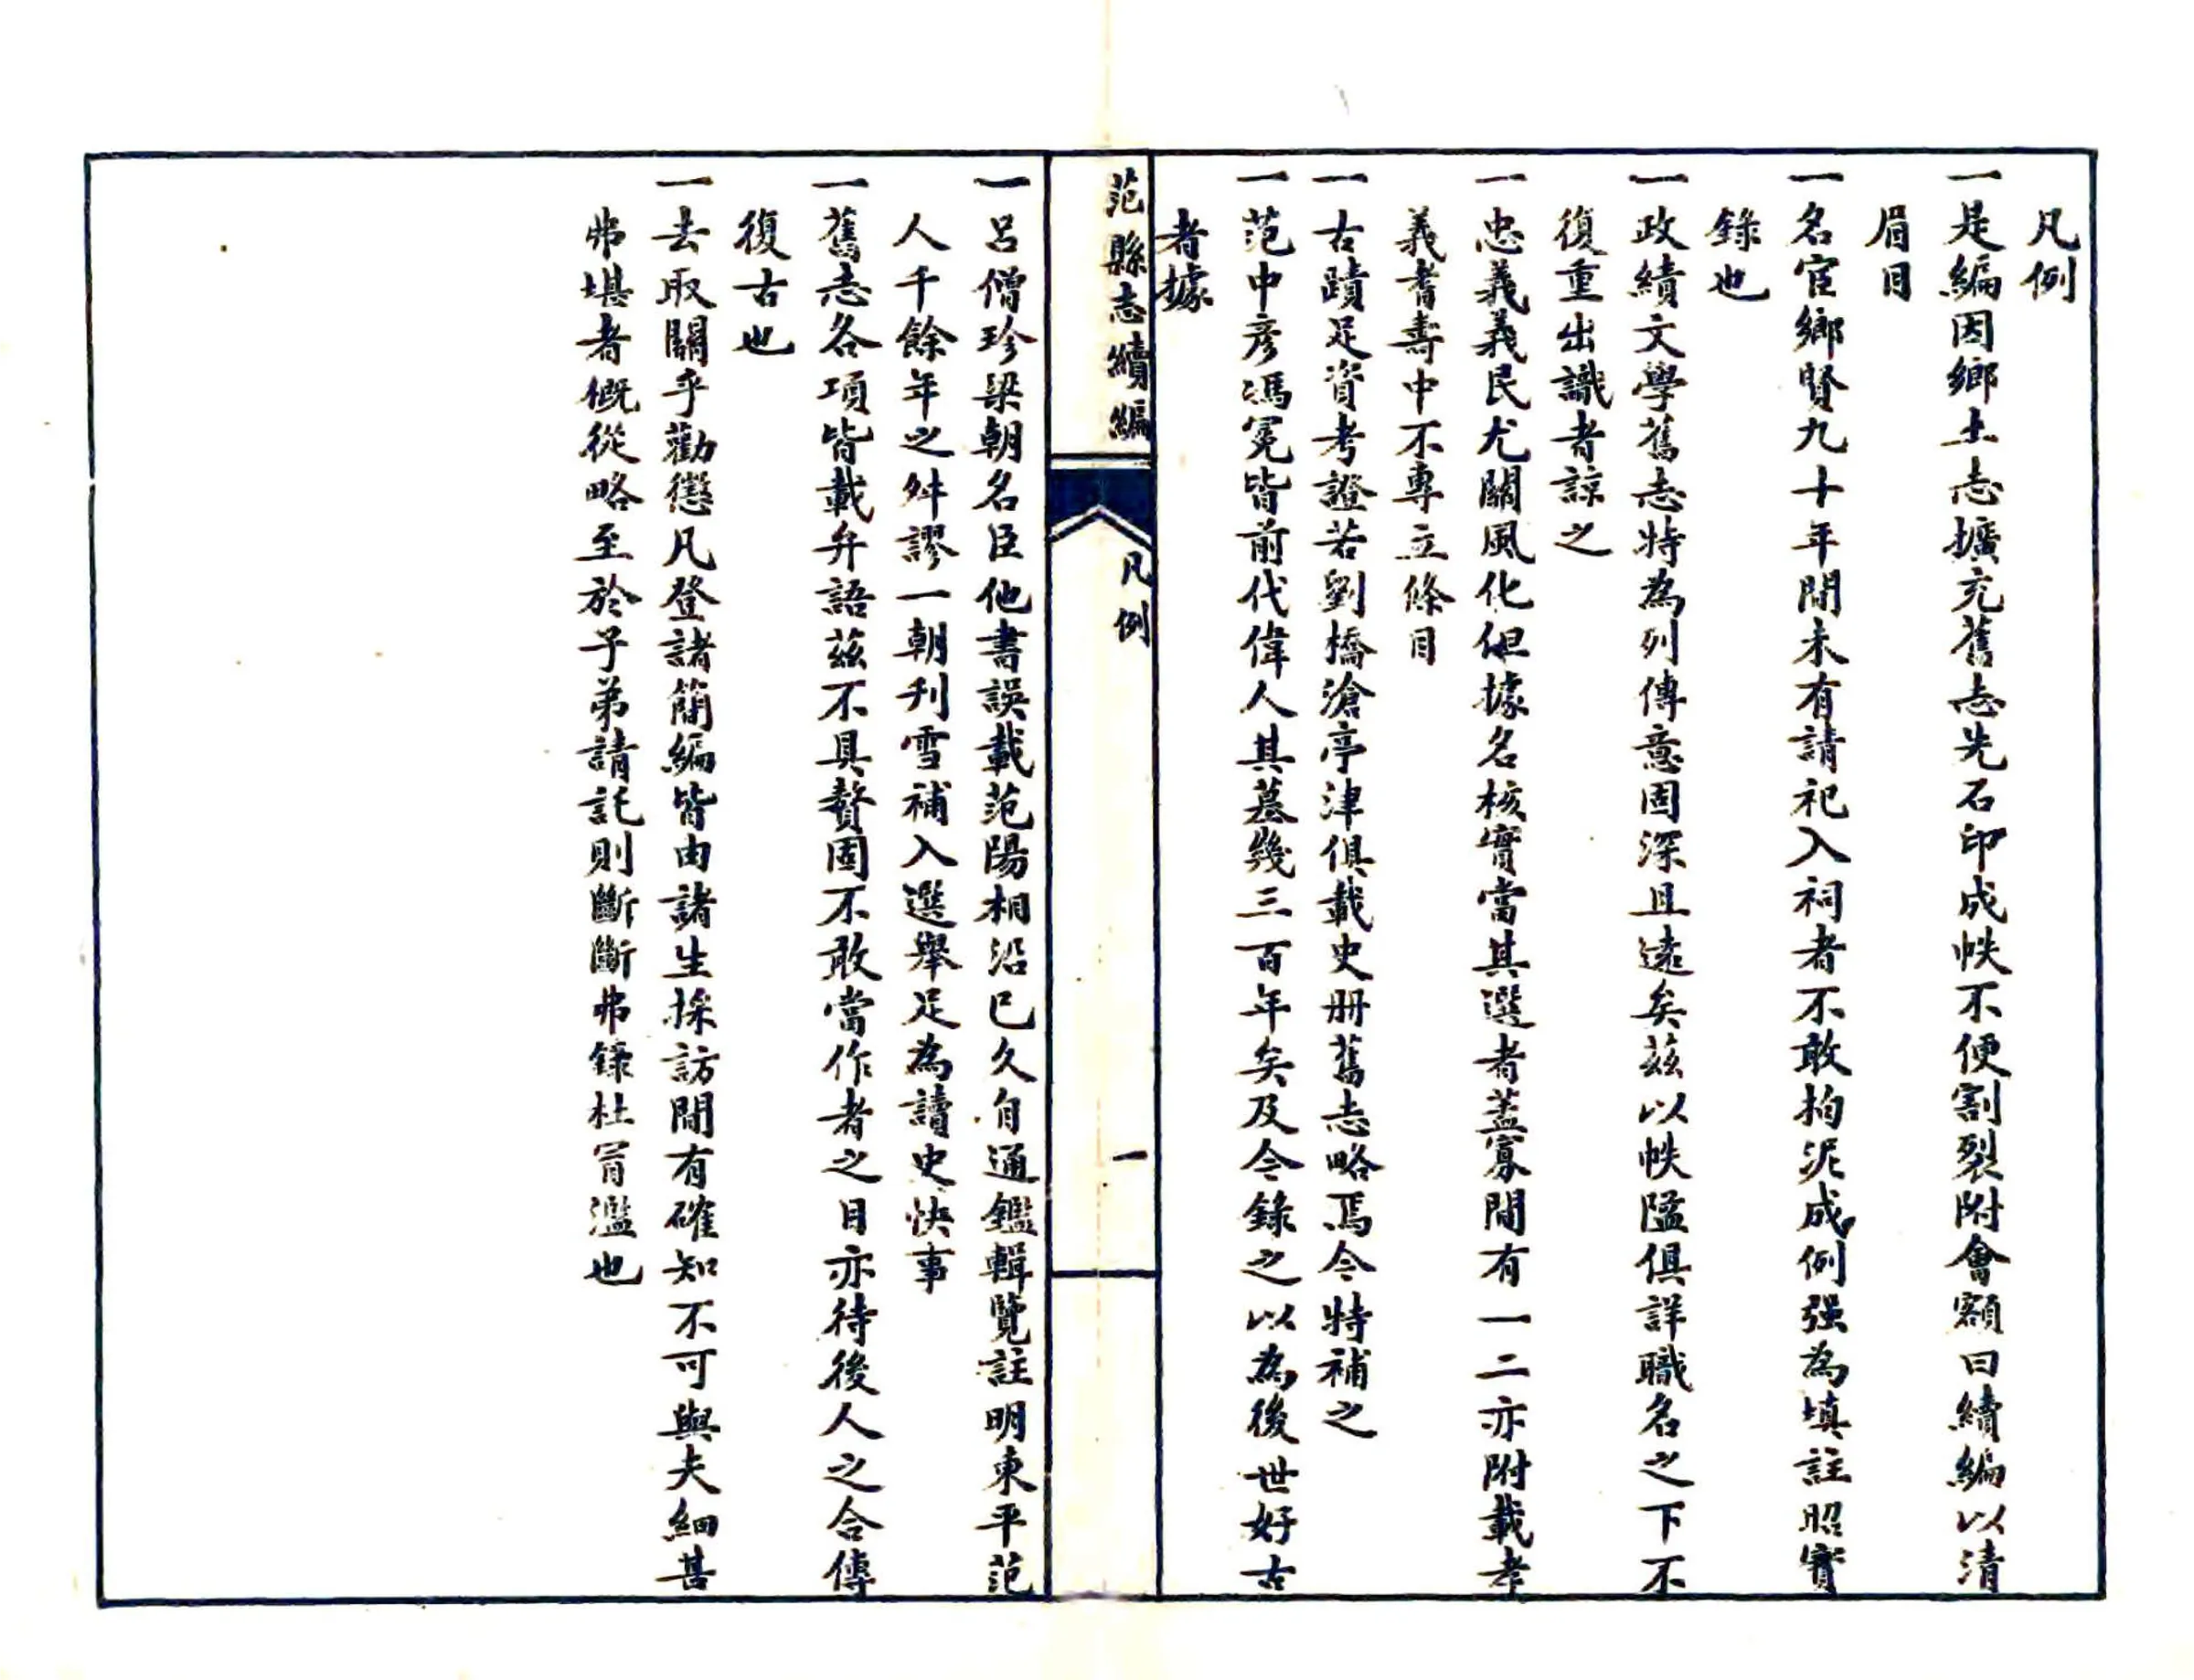 凡例
一是編因鄉土志擴充舊志先石印成帙不便割裂附會額曰續編以清
眉目
一名宦鄉賢九十年間未有請祀入祠者不敢拘泥成例强為填註昭實
錄也
一政績文學舊志特為列傳意固深且遠矣茲以帙隘俱詳職名之下不
復重出識者諒之
一忠義義民尤關風化但據名核實當其選者蓋寡間有一二亦附載孝
義耆壽中不專立條目
一古蹟足資考證若劉橋滄亭津俱載史册舊志略焉今特補之
一范中彥馮冕皆前代偉人其墓幾三百年矣及今錄之以為後世好古
者據
范縣志續編
凡例
一
一呂僧珍梁朝名臣他書誤載范陽相沿已久自通鑑輯覽註明東平范
人千餘年之舛謬一朝刊雪補入選舉足為讀史快事
一舊志各項皆載弁語茲不具贅固不敢當作者之目亦待後人之合傳
復古也
一去取關乎勸懲凡登諸簡編皆由諸生採訪間有確知不可與夫細甚
弗堪者概從略至於子弟請託則斷斷弗錄杜冒濫也